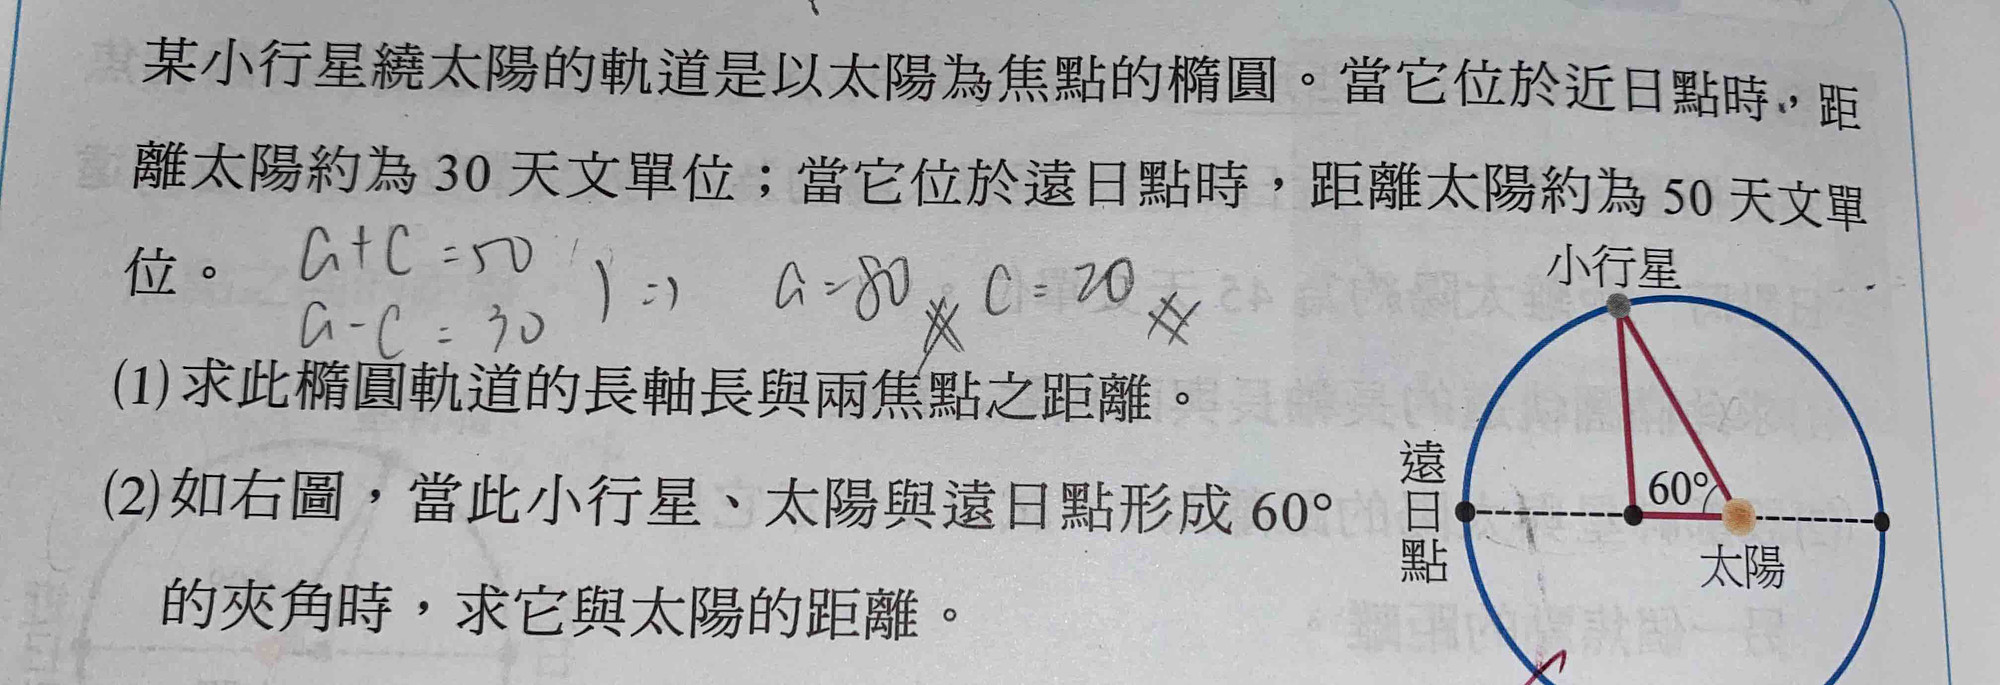 某小行星繞太陽的軌道是以太陽為焦點的橢圓。當它位於近日點時，距
離太陽約為 30 天文單位；當它位於遠日點時，距離太陽約為 50 天文單
位。
a+c=50
a-c=30
} => a=80 c=20
小行星
(1) 求此橢圓軌道的長軸長與兩焦點之距離。
(2) 如右圖，當此小行星、太陽與遠日點形成 60°
的夾角時，求它與太陽的距離。
遠日點
60°
太陽